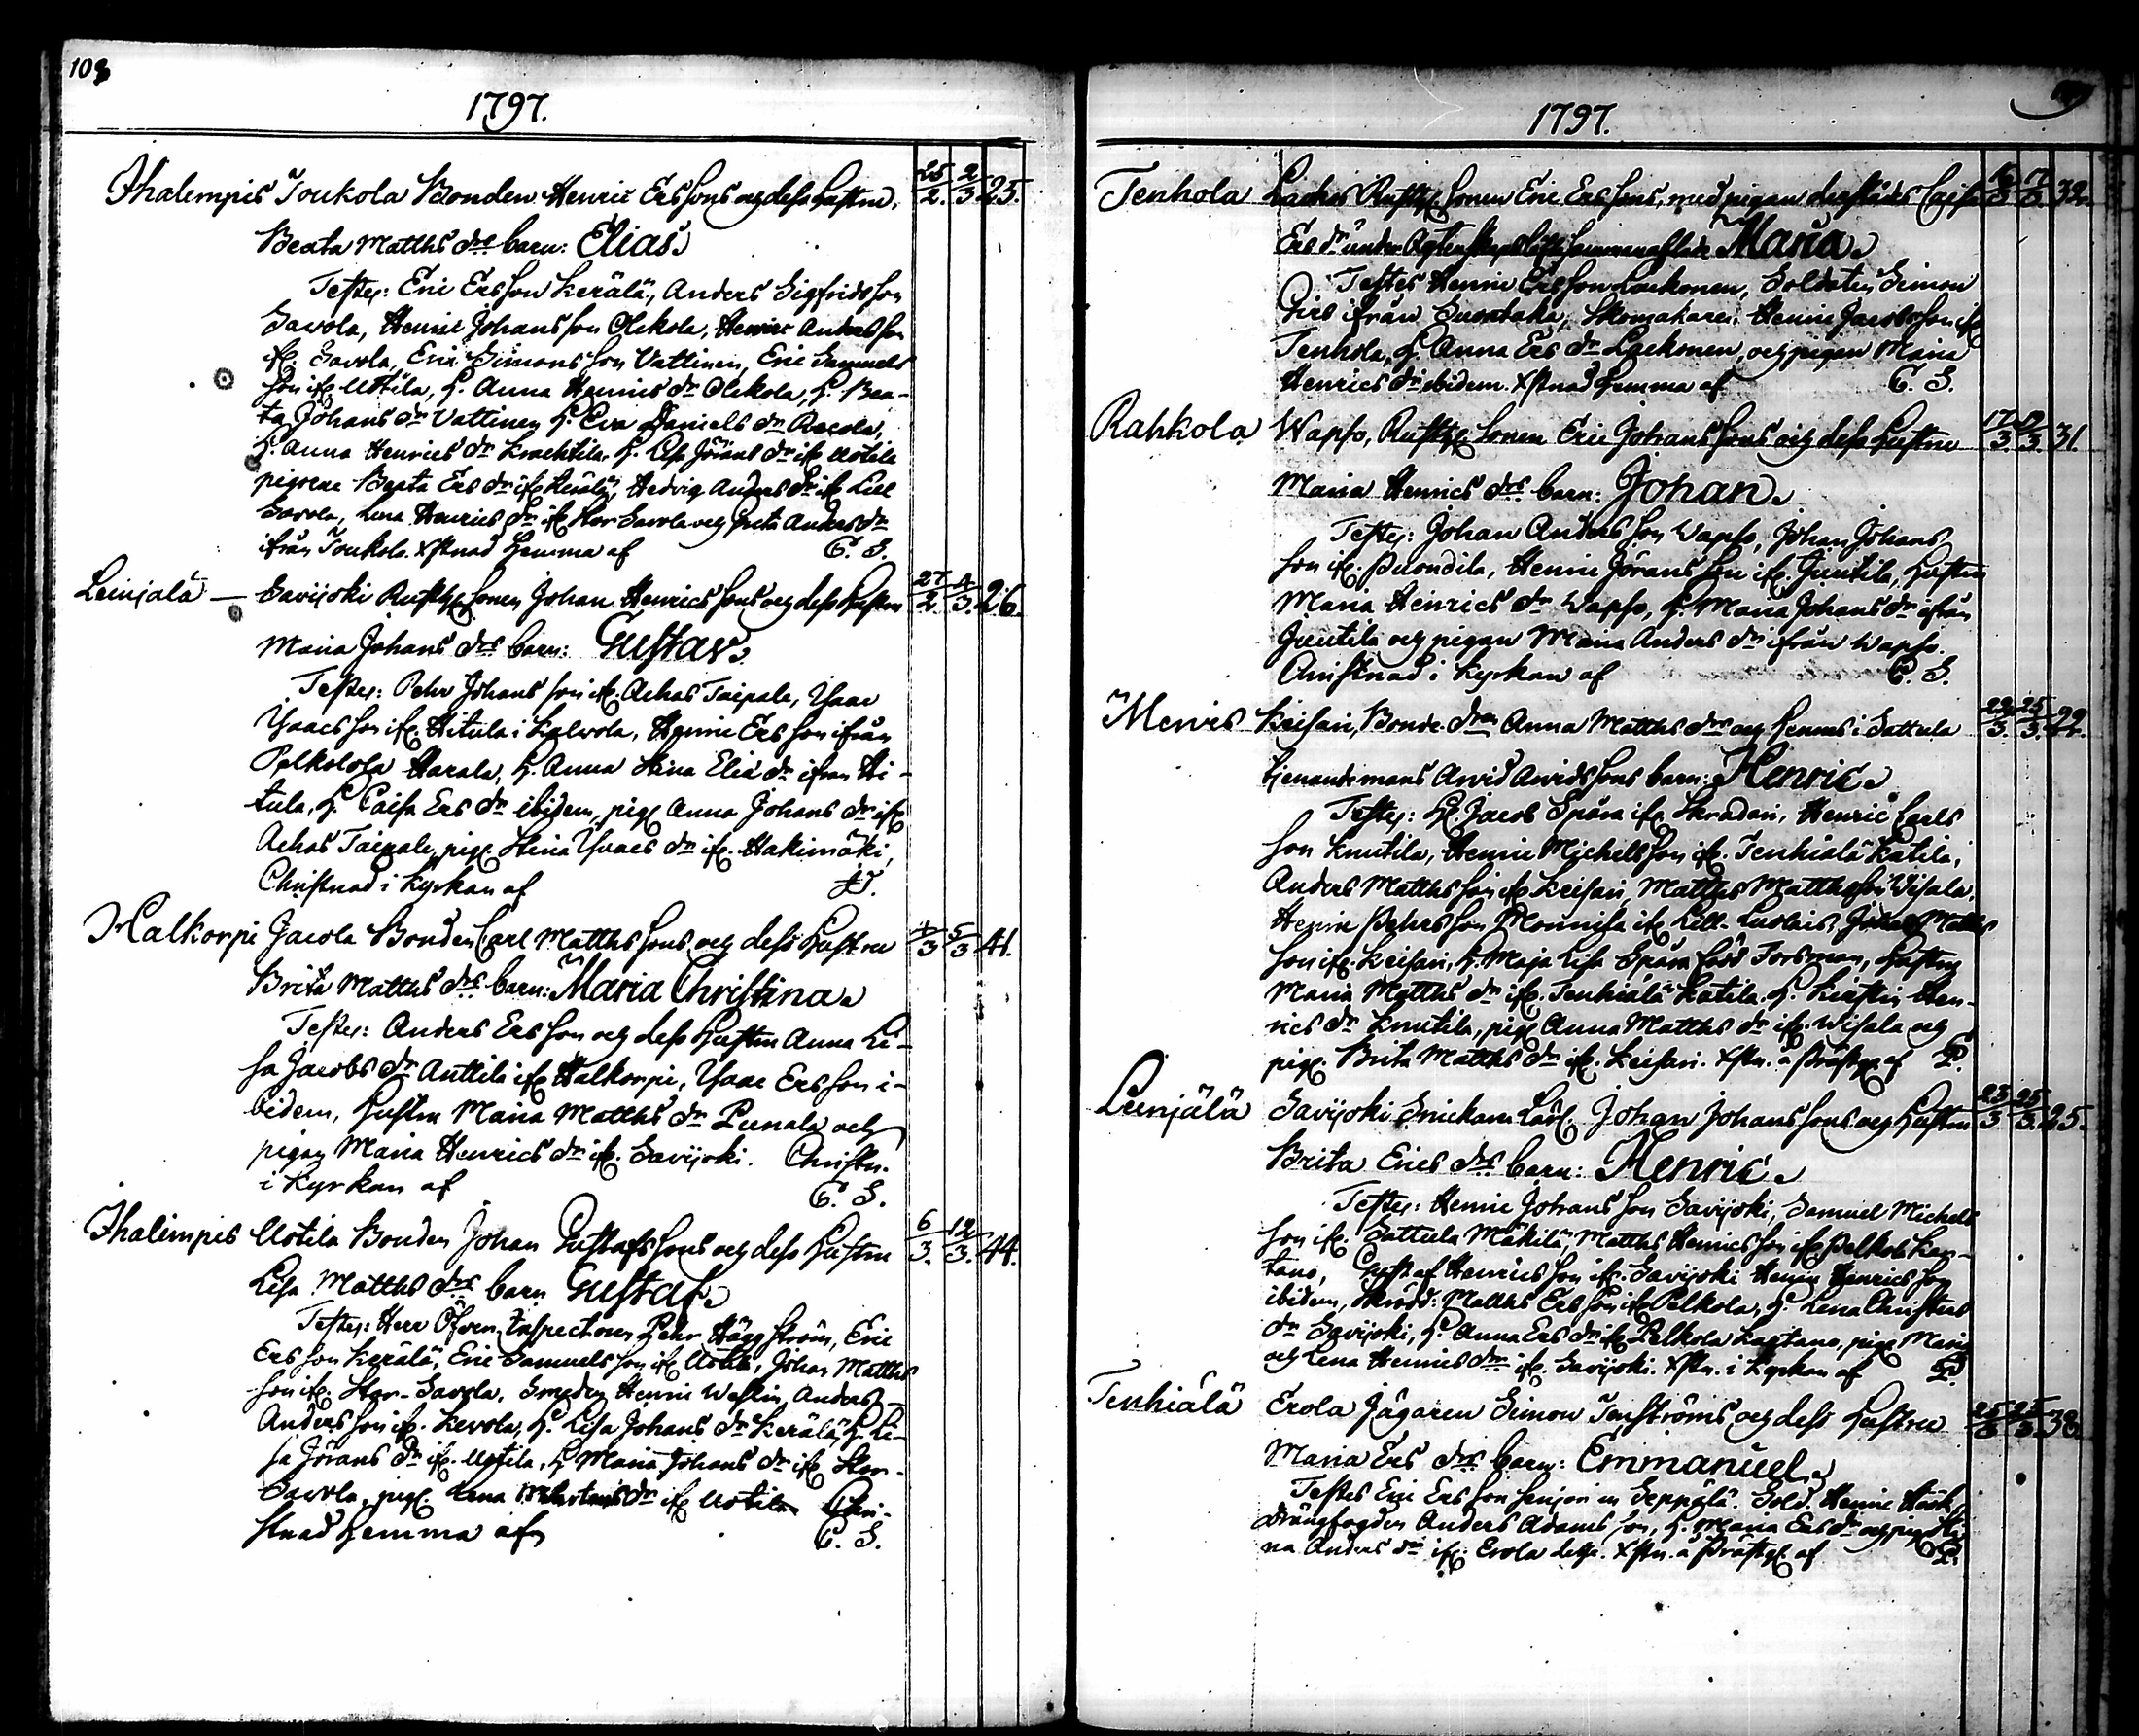 108
1797.
Ihalempis Toukola Bonden Henric Erssons och dess hustru
25/2. 2/3 25.
Beata Matths drs barn: Elias.
Testes: Eric Ersson Kerälä, Anders Sigfridsson
Savola, Henric Johansson Olekola, Henric Andersson
ifr. Savola, Eric Simonsson Vattinen, Eric Samuels
son ifr Uotila, h. Anna Henrics dr Olekola, h. Bea-
ta Johans dr Vattinen h. Eva Daniels dr
h. Anna Henrics dr h. Lisa Jörans dr ifr Uotila
pigorne Beata Ers dr ifr Kerälä, Hedvig Anders dr ifr Lill
Savola, Lena Henrics dr ifr Stor Savola och Greta Anders dr
ifrån Toukola. Xstnad hemma af C. S.
Leinjälä — Savijoki Rusth. sonen Johan Henricssons och dess hustru
27/2. 4/3. 26.
Maria Johans drs barn: Gustav.
Testes: Pehr Johansson ifr. Achas Taipale, Isaac
Isaacsson ifr. Hitula i Kalvola, Henric Ersson ifrån
Harala, h. Anna Stina Eliæ dr ifrån Hi-
tula, h. Caisa Ers dr ibidem, pig. Anna Johans dr ifr
Achas Taipale, pig. Stina Isaacs dr ifr. Hakimäki,
Christnad i Kyrkan af
Halkorpi Jacola Bonden Carl Matthssons och dess hustru
4/3 5/3 41.
Brita Matths drs barn: Maria Christina.
Testes: Anders Ersson och dess hustru Anna Li-
sa Jacobs dr Anttila ifr Halkorpi, Isaac Ersson i-
bidem, hustru Maria Matths dr Punala och
pigan Maria Henrics dr ifr. Savijoki. Christn.
i Kyrkan af C. S.
Ihalempis Uotila Bonden Johan Gustafssons och dess hustru
6/3. 12/3. 44.
Lisa Matths drs barn Gustaf.
Testes: Herr Öfver Inspectoren Pehr Häggström, Eric
Ersson Kerälä, Eric Samuelsson ifr Uotila, Johan Matths
son ifr. Stor-Savola, Smeden Henric Westin, Anders
Andersson ifr. Kerola, h. Lisa Johans dr Kerälä, h. Li-
sa Jörans dr ifr. Uotila, h Maria Johans dr ifr Stor-
Savola, pig. Lena dr ifr Uotila Chri-
stnad hemma af C. S.
1797.
Tenhola Rusth. sonen Eric Erssons, med pigan derstädes Caisa
17/3. 32.
Ers dr under Ägtenskaps löfte sammanaflade Maria.
Testes Henric Ersson Lackonen, Soldaten Simon
ifrån Suontaka, Skomakaren Henric Jacobsson ifr
Tenhola, h. Anna Ers dr Lackonen, och pigan Maria
Henrics dr ibidem. Xstnad hemma af C. S.
Rahkola Wapso, Rusth. sonen Eric Johanssons och dess hustru
17/3. 19/3. 31.
Maria Henrics drs barn: Johan.
Testes: Johan Andersson Wapso, Johan Johans
son ifr. Puondila, Henric Jöransson ifr. Juutila, hustru
Maria Henrics dr Wapso, h. Maria Johans dr ifrån
Juutila och pigan Maria Anders dr ifrån Wapso.
Christnad i Kyrkan af C. S.
Mervis Keisari, Bonde dren Anna Matths drs och hennes i Sattula
25/3. 22.
tjenande mans Arvid Arvidssons barn: Henric.
Testes: Jacob Spåra ifr. Henric Carls
son Knutila, Henric Michelsson ifr. Tenhiälä Katila,
Anders Matthsson ifr Keisari, Matths Matthsson Wisala,
Henric Pehrsson Monnisa ifr Lill-Luolais, Johan Matths
son ifr. Keisari, h. Maja Lisa Spåra född Forsman, hustru
Maria Matths dr ifr. Tenhiälä Katila. h. Kirstin Hen-
rics dr Knutila, pig Anna Matths dr ifr. Wisala och
pig. Brita Matths dr ifr. Keisari. Xstn. å Prästg. af P.
Leinjälä Savijoki Snickare Lärl. Johan Johanssons och hustru
23/3 25/3. 25.
Brita Erics drs barn: Henric.
Testes: Henric Johansson Savijoki, Samuel Michels
son ifr. Sattula Mäkilä, Matths Henricsson ifr Pelkola Kar-
tano, Gustaf Henricsson ifr. Savijoki Henric Henricsson
ibidem, Skrädd: Matths Ersson ifr Pelkola, h. Lena Christers
dr Savijoki, h. Anna Ers dr ifr Pelkola Kartano, piga Maria
och Lena Henrics dr ifr. Savijoki. Xstn. i Kyrkan af P.
Tenhiälä Erola Jägaren Simon Tenströms och dess hustru
25/3 25/3. 38.
Maria Ers drs barn: Emmanuel.
Testes Eric Ersson senior in Seppälä. Sold. Henric Höök,
drängfogden Anders Adamsson, h. Maria Ers dr och pig. Sti-
na Anders dr ifr. Erola Xstn. å Prästg. af P.